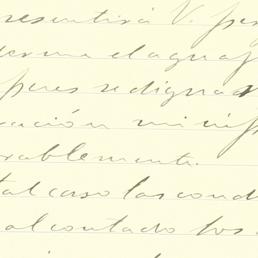 resentirá V. pe
derme el agua
peres se digna
cación mi inf
rablemente.
tal caso las cond
al contado los